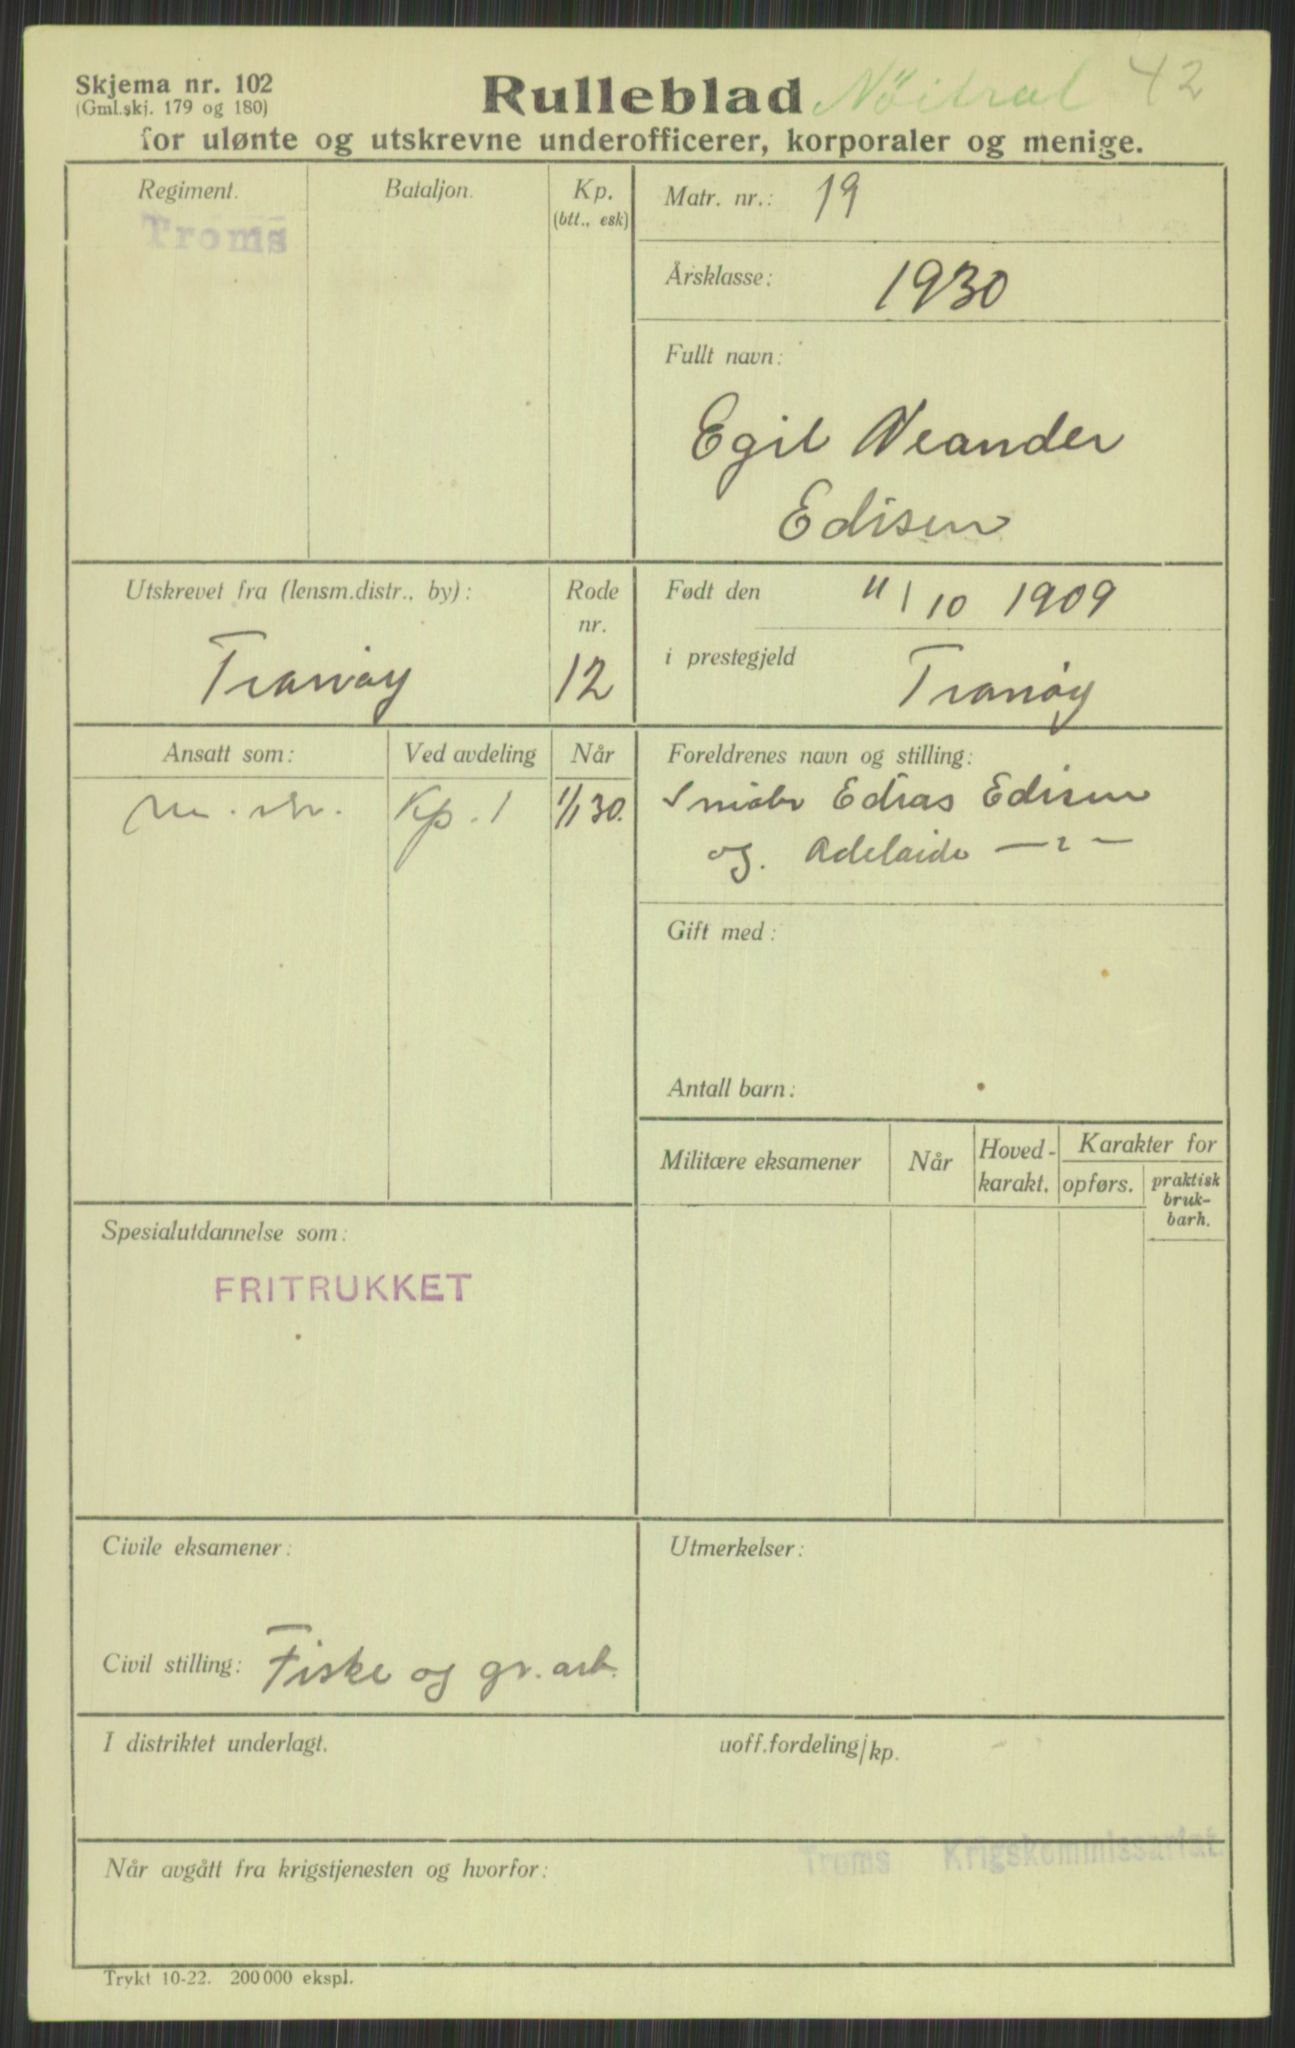 Skjema nr. 102
(Gml.skj. 179 og 180)
Rulleblad Nöitral 42
for ulønte og utskrevne underofficerer, korporaler og menige.
Regiment. Bataljon. Kp.
(btt., esk)
Troms
Matr. nr.: 19
Årsklasse: 1930
Fullt navn:
Egil Neander
Edisen
Utskrevet fra (lensm.distr., by): Rode
nr.
Tranøy 12
Født den 11/10 1909
i prestegjeld Tranøy
Ansatt som: Ved avdeling Når
Kp. 1 1/1 30.
Foreldrenes navn og stilling:
Edias Edisen
og. Adelaide — " —
Gift med:
Antall barn:
Militære eksamener Når Hoved-
karakt. Karakter for
opførs. praktisk
bruk-
barh.
Spesialutdannelse som:
FRITRUKKET
Civile eksamener:
Utmerkelser:
Civil stilling: Fiske og gr. arb.
I distriktet underlagt. uoff.fordeling/kp.
Troms Krigskommissariat
Når avgått fra krigstjenesten og hvorfor:
Trykt 10-22. 200000 ekspl.